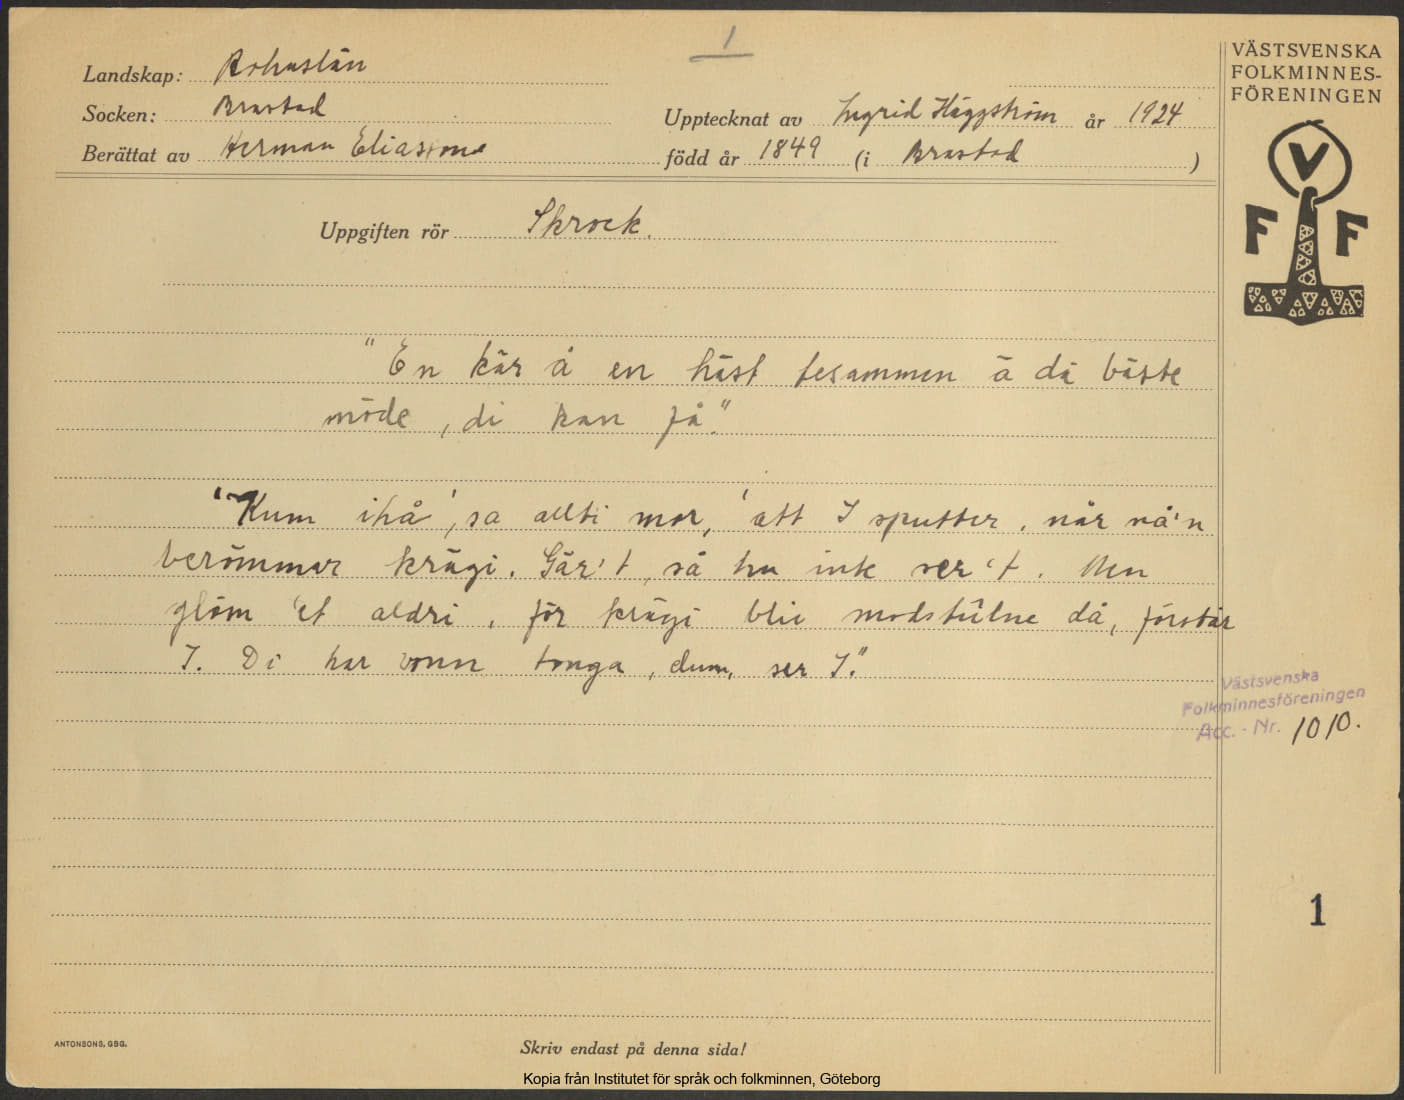 1
VÄSTSVENSKA
FOLKMINNES-
FÖRENINGEN
Landskap: Bohuslän
Socken: Brastad
Upptecknat av Ingrid Häggström år 1924
Berättat av Herman Eliasson
född år 1849 (i Brastad)
V
F F
Uppgiften rör Skrock.
"En kär å en häst tesammen ä dä bäste
möde, di kan få."
"Kum ihå', sa allti mor, 'att I sputter, när nå'n
berömmar krägi. Gär't, så hu ink ser't. Men
glöm 'et aldri, för krägi bliv modstülne då, förstår
I. Di har vonn tonga, dum, ser I."
Västsvenska
Folkminnesföreningen
Acc. - Nr. 1010.
1
ANTONSONS, GBG.
Skriv endast på denna sida!
Kopia från Institutet för språk och folkminnen, Göteborg